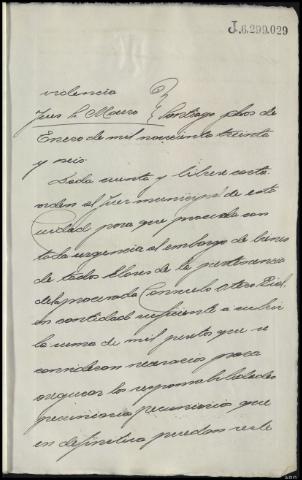 J.6.299.029
violencia
Juez Sr. Mouro } Santiago dos de
Enero de mil novecientos treinta
y seis.
Dada cuenta y líbrese carta
orden al Juez municipal de esta
Ciudad para que proceda con
toda urgencia al embargo de bienes
de todas clases de la pertenencia
del procesado Consuelo Otero
en cantidad suficiente a cubrir
la suma de mil pesetas que se
consideran necesarias para
asegurar las responsabilidades
pecuniarias pecuniarias que
en definitiva puedan